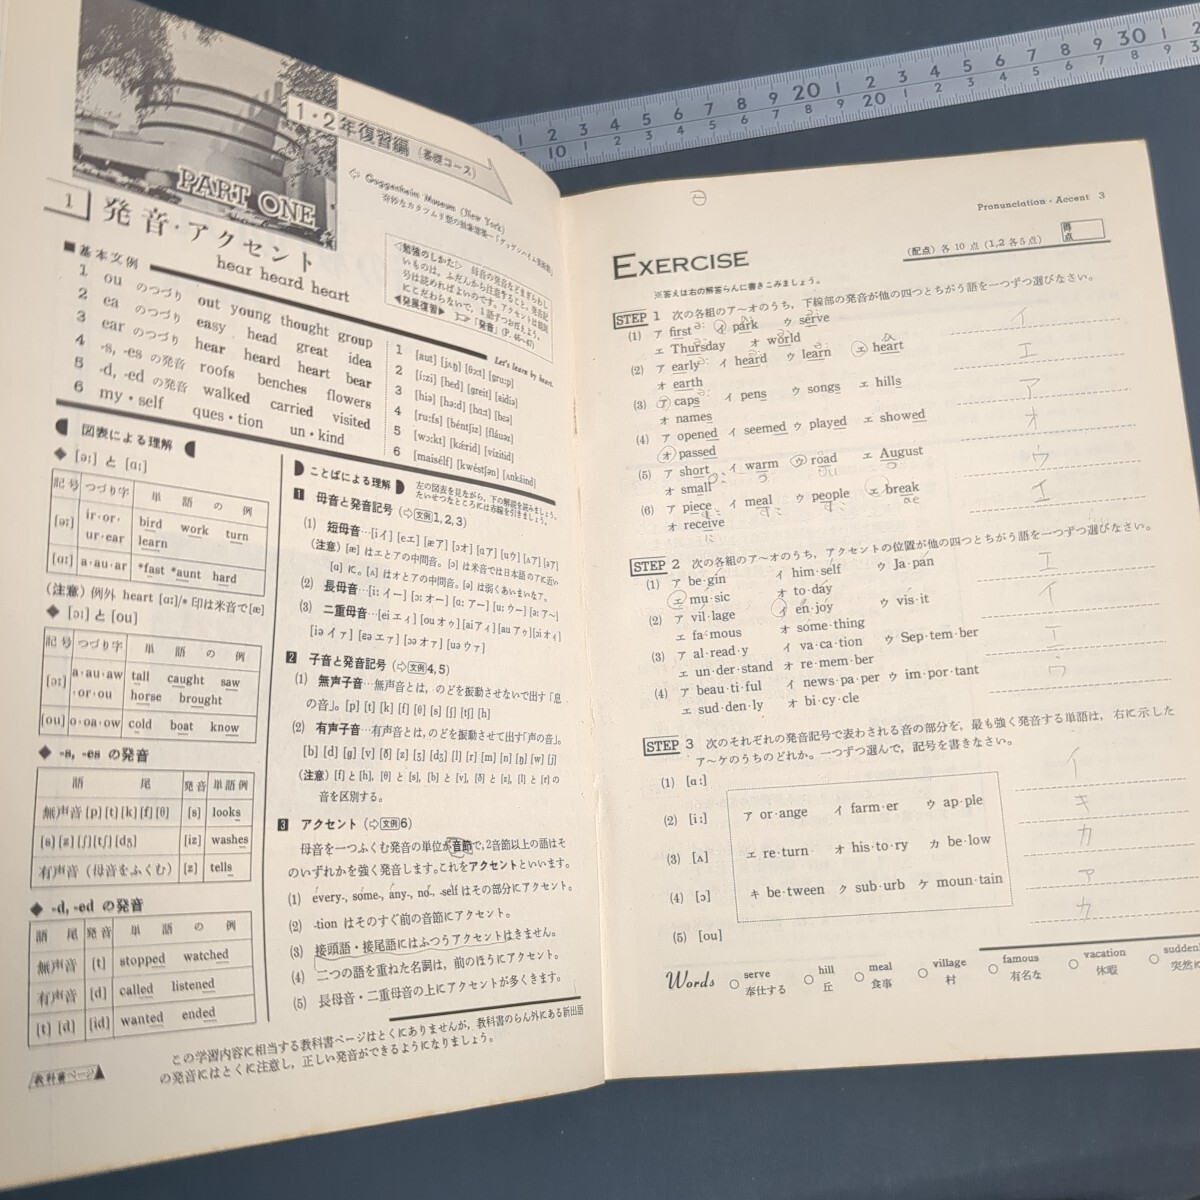 1・2年復習編(基礎コース)
⇦ Guggenheim Museum (New York)
PART ONE
1 発音・アクセント
hear heard heart
■基本文例
1 ou のつづり out young thought group
2 ea のつづり easy head great idea
3 ear のつづり hear heard heart bear
4 -s, -es の発音 roofs benches flowers
5 -d, -ed の発音 walked carried visited
6 my・self ques・tion un・kind
◁勉強のしかた▷
Let's learn by heart.
1 [aut] [jʌŋ] [θɔːt] [gruːp]
2 [iːzi] [hed] [greit] [aidiə]
3 [hiə] [həːd] [hɑːt] [bɛə]
4 [ruːfs] [béntʃiz] [fláuəz]
5 [wɔːkt] [kǽrid] [vízitid]
6 [maisélf] [kwéstʃən] [ʌnkáind]
図表による理解
◆ [əː] と [ɑː]
記号 つづり字 単語の例
[əː] ir・or・ur・ear bird work turn learn
[ɑː] a・au・ar *fast *aunt hard
(注意) 例外 heart [ɑː]/* 印は米音で[æ]
◆ [ɔː] と [ou]
記号 つづり字 単語の例
[ɔː] a・au・aw・or・ou tall caught saw horse brought
[ou] o・oa・ow cold boat know
◆ -s, -es の発音
語尾 発音 単語例
無声音 [p] [t] [k] [f] [θ] [s] looks
[s] [z] [ʃ] [tʃ] [dʒ] [iz] washes
有声音(母音をふくむ) [z] tells
◆ -d, -ed の発音
語尾 発音 単語の例
無声音 [t] stopped watched
有声音 [d] called listened
[t] [d] [id] wanted ended
ことばによる理解
左の図表を見ながら, 下の解説を読みましょう。
たいせつなところには赤線を引きましょう。
1 母音と発音記号 (⇨文例1, 2, 3)
(1) 短母音…[iイ] [eエ] [æア] [ɔオ] [ɑア] [uウ] [ʌア] [əア]
(注意) [æ] はエとアの中間音。[ɔ] は米音では日本語のアに近い
[ɑ] に。[ʌ] はオとアの中間音。[ə] は弱くあいまいなア。
(2) 長母音…[iː イー] [ɔː オー] [ɑː アー] [uː ウー] [əː アー]
(3) 二重母音…[ei エィ] [ou オゥ] [ai アィ] [au アゥ] [ɔi オィ]
[iə イァ] [ɛə エァ] [ɔə オァ] [uə ウァ]
2 子音と発音記号 (⇨文例4, 5)
(1) 無声子音…無声音とは, のどを振動させないで出す「息
の音」。[p] [t] [k] [f] [θ] [s] [ʃ] [tʃ] [h]
(2) 有声子音…有声音とは, のどを振動させて出す「声の音」。
[b] [d] [g] [v] [ð] [z] [ʒ] [dʒ] [l] [r] [m] [n] [ŋ] [w] [j]
(注意) [f] と [h], [θ] と [s], [b] と [v], [ð] と [z], [l] と [r] の
音を区別する。
3 アクセント (⇨文例6)
母音を一つふくむ発音の単位が音節で, 2音節以上の語はそ
のいずれかを強く発音します。これをアクセントといいます。
(1) évery-, sóme-, ány-, nó-, -sélf はその部分にアクセント。
(2) -tion はそのすぐ前の音節にアクセント。
(3) 接頭語・接尾語にはふつうアクセントはきません。
(4) 二つの語を重ねた名詞は, 前のほうにアクセント。
(5) 長母音・二重母音の上にアクセントが多くきます。
教科書ページ
この学習内容に相当する教科書ページはとくにありませんが, 教科書のらん外にある新出語
の発音にはとくに注意し, 正しい発音ができるようになりましょう。
Pronunciation・Accent 3
EXERCISE
(配点) 各10点 (1, 2 各5点)
得点
※答えは右の解答らんに書きこみましょう。
STEP 1 次の各組のア〜オのうち, 下線部の発音が他の四つとちがう語を一つずつ選びなさい。
(1) ア first イ park ウ serve イ
エ Thursday オ world
(2) ア early イ heard ウ learn エ heart エ
オ earth
(3) ア caps イ pens ウ songs エ hills ア
オ names
(4) ア opened イ seemed ウ played エ showed オ
オ passed
(5) ア short イ warm ウ road エ August ウ
オ small
(6) ア piece イ meal ウ people エ break エ
オ receive
STEP 2 次の各組のア〜オのうち, アクセントの位置が他の四つとちがう語を一つずつ選びなさい。
(1) ア be・gin イ him・self ウ Ja・pan エ
エ mu・sic オ to・day
(2) ア vil・lage イ en・joy ウ vis・it イ
エ fa・mous オ some・thing
(3) ア al・read・y イ va・ca・tion ウ Sep・tem・ber エ
エ un・der・stand オ re・mem・ber
(4) ア beau・ti・ful イ news・pa・per ウ im・por・tant ウ
エ sud・den・ly オ bi・cy・cle
STEP 3 次のそれぞれの発音記号で表わされる音の部分を, 最も強く発音する単語は, 右に示した
ア〜ケのうちのどれか。一つずつ選んで, 記号を書きなさい。
(1) [ɑː] イ
(2) [iː] キ
(3) [ʌ] カ
(4) [ɔ] ア
(5) [ou] カ
ア or・ange イ farm・er ウ ap・ple
エ re・turn オ his・to・ry カ be・low
キ be・tween ク sub・urb ケ moun・tain
Words
serve 奉仕する
hill 丘
meal 食事
village 村
famous 有名な
vacation 休暇